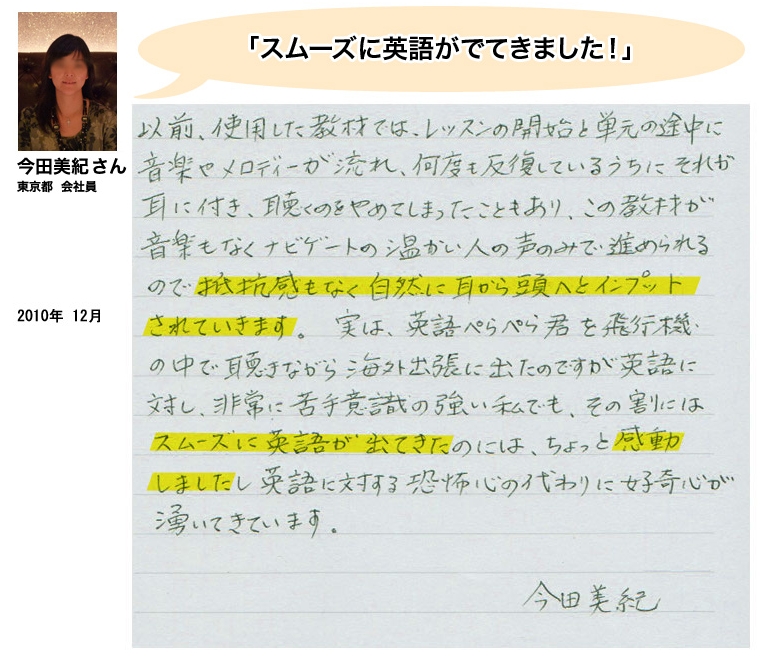 「スムーズに英語がでてきました！」
今田美紀さん
東京都 会社員
2010年 12月
以前、使用した教材では、レッスンの開始と単元の途中に
音楽やメロディーが流れ、何度も反復しているうちにそれが
耳に付き、聴くのをやめてしまったこともあり、この教材が
音楽もなくナビゲートの温かい人の声のみで進められる
ので抵抗感もなく自然に耳から頭へとインプット
されていきます。実は、英語ぺらぺら君を飛行機
の中で聴きながら海外出張に出たのですが英語に
対し、非常に苦手意識の強い私でも、その割には
スムーズに英語が出てきたのには、ちょっと感動
しましたし英語に対する恐怖心の代わりに好奇心が
湧いてきています。
今田美紀